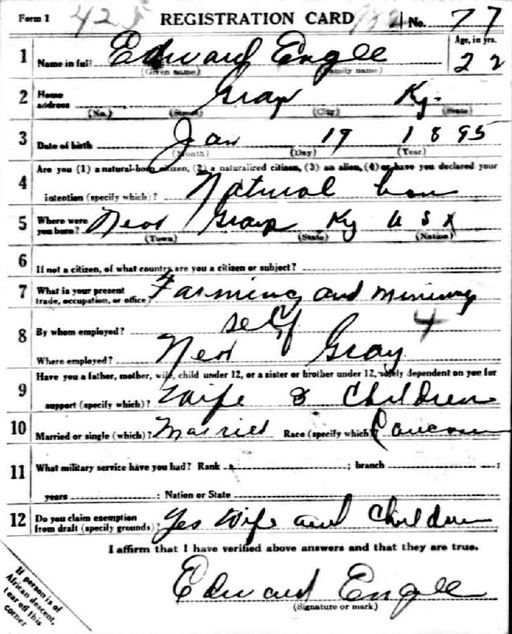 Form 1 425 REGISTRATION CARD No. 77
1 Name in full Edward Engle Age, in yrs. 22
(Given name) (Family name)
2 Home address Gray Ky.
(No.) (Street) (City) (State)
3 Date of birth Jan 19 1895
(Month) (Day) (Year)
4 Are you (1) a natural-born citizen, (2) a naturalized citizen, (3) an alien, (4) or have you declared your
intention (specify which)? Natural born
5 Where were you born? Near Gray Ky USA
(Town) (State) (Nation)
6 If not a citizen, of what country are you a citizen or subject?
7 What is your present trade, occupation, or office? Farming and mining
8 By whom employed? self 4
Where employed? Near Gray
9 Have you a father, mother, wife, child under 12, or a sister or brother under 12, solely dependent on you for
support (specify which)? Wife 3 Children
10 Married or single (which)? Married Race (specify which)?
11 What military service have you had? Rank ; branch ;
years ; Nation or State
12 Do you claim exemption from draft (specify grounds)? Yes Wife and Children
I affirm that I have verified above answers and that they are true.
Edward Engle
(Signature or mark)
If person is of
African descent,
tear off this
corner